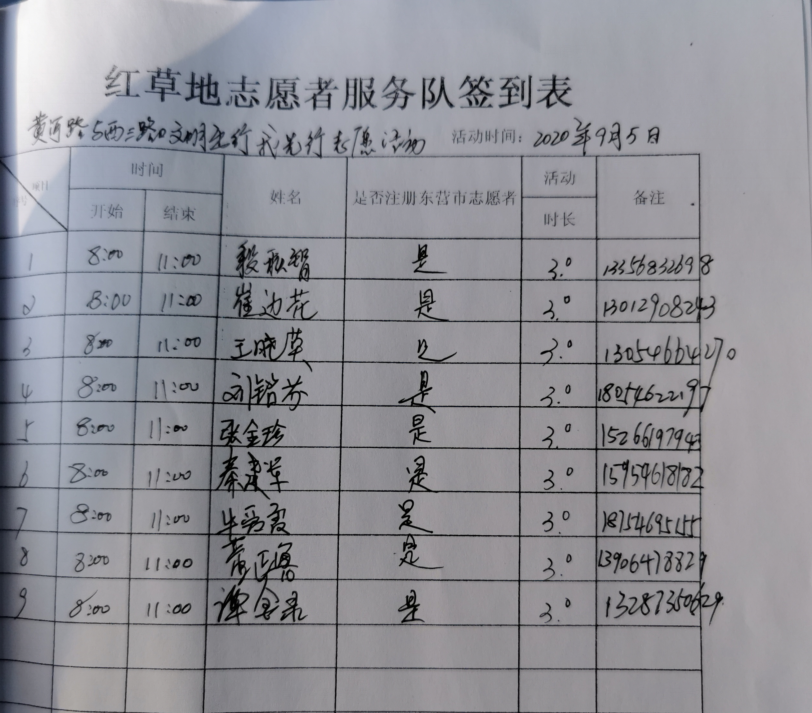 红草地志愿者服务队签到表
黄河路与西三路口文明先行我先行志愿活动 活动时间：2020年9月5日
项目 时间 姓名 是否注册东营市志愿者 活动 备注
开始 结束 时长
1 8:00 11:00 是 3.0 13356832698
2 8:00 11:00 崔边花 是 3.0 13012908243
3 8:00 11:00 王晓英 是 3.0 13054664270
4 8:00 11:00 刘铭芬 是 3.0 18054622197
5 8:00 11:00 张金珍 是 3.0 15266197943
6 8:00 11:00 秦建草 是 3.0 15954618182
7 8:00 11:00 牛秀霞 是 3.0 18754695155
8 8:00 11:00 是 3.0 13906478829
9 8:00 11:00 谭金录 是 3.0 13287350629